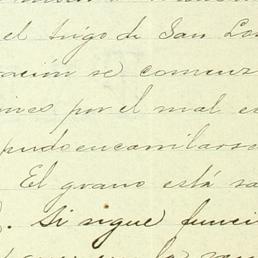 el trigo de San Lo
ración se comenz
por el mal es
pudo encarrilarse
El grano está sa
Si sigue funci